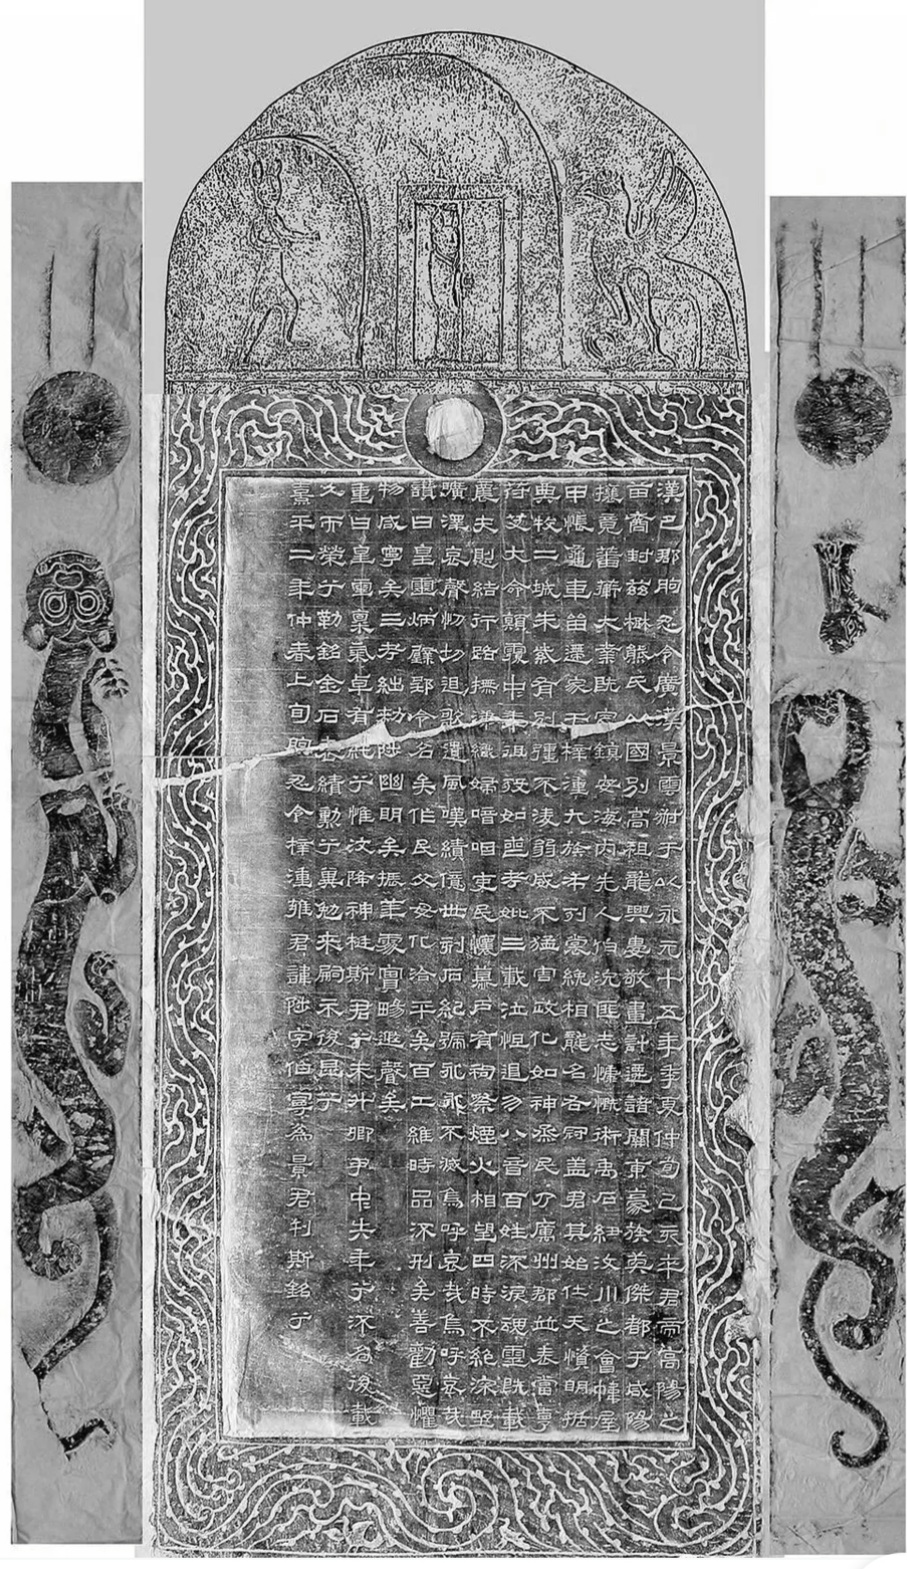 漢巴郡朐忍令廣漢景雲叔于以永元十五年季夏仲旬己亥卒君帝高陽之
苗裔封茲楚熊氏以國別高祖龍興婁敬畫計遷諸關東豪族英傑都于咸陽
攘竟蕃衛大業既定鎮安海內先人伯沇匪志慷慨術禹石紐汶川之會幃屋
甲帳龜車留遰家于梓潼九族布列裳絻相襲名右冠蓋君其始仕天資明括
典牧二城朱紫有別彊不凌弱威不猛害政化如神烝民乃厲州郡並表當享
符艾大命顛覆中年徂歿如喪考妣三載泣怛遏勿八音百姓流淚魂靈既載
農夫惻結行路撫涕織婦喑咽吏民懷慕戶有祠祭煙火相望四時不絕深野
曠澤哀聲忉切追歌遺風嘆績億世刻石紀號永永不滅烏呼哀哉烏呼哀哉
讚曰皇靈炳璧郢令名矣作民父母化洽平矣百工維時品流刑矣善勸惡懼
物咸寧矣三考絀敕陟幽明矣振華處實暘遐聲矣
重曰皇靈稟氣卓有純兮惟汶降神梃斯君兮未升卿尹中失年兮流名後載
久而榮兮勒銘金石表績勳兮冀勉來嗣示後昆兮
熹平二年仲春上旬朐忍令梓潼雍君諱陟字伯寧為景君刊斯銘兮